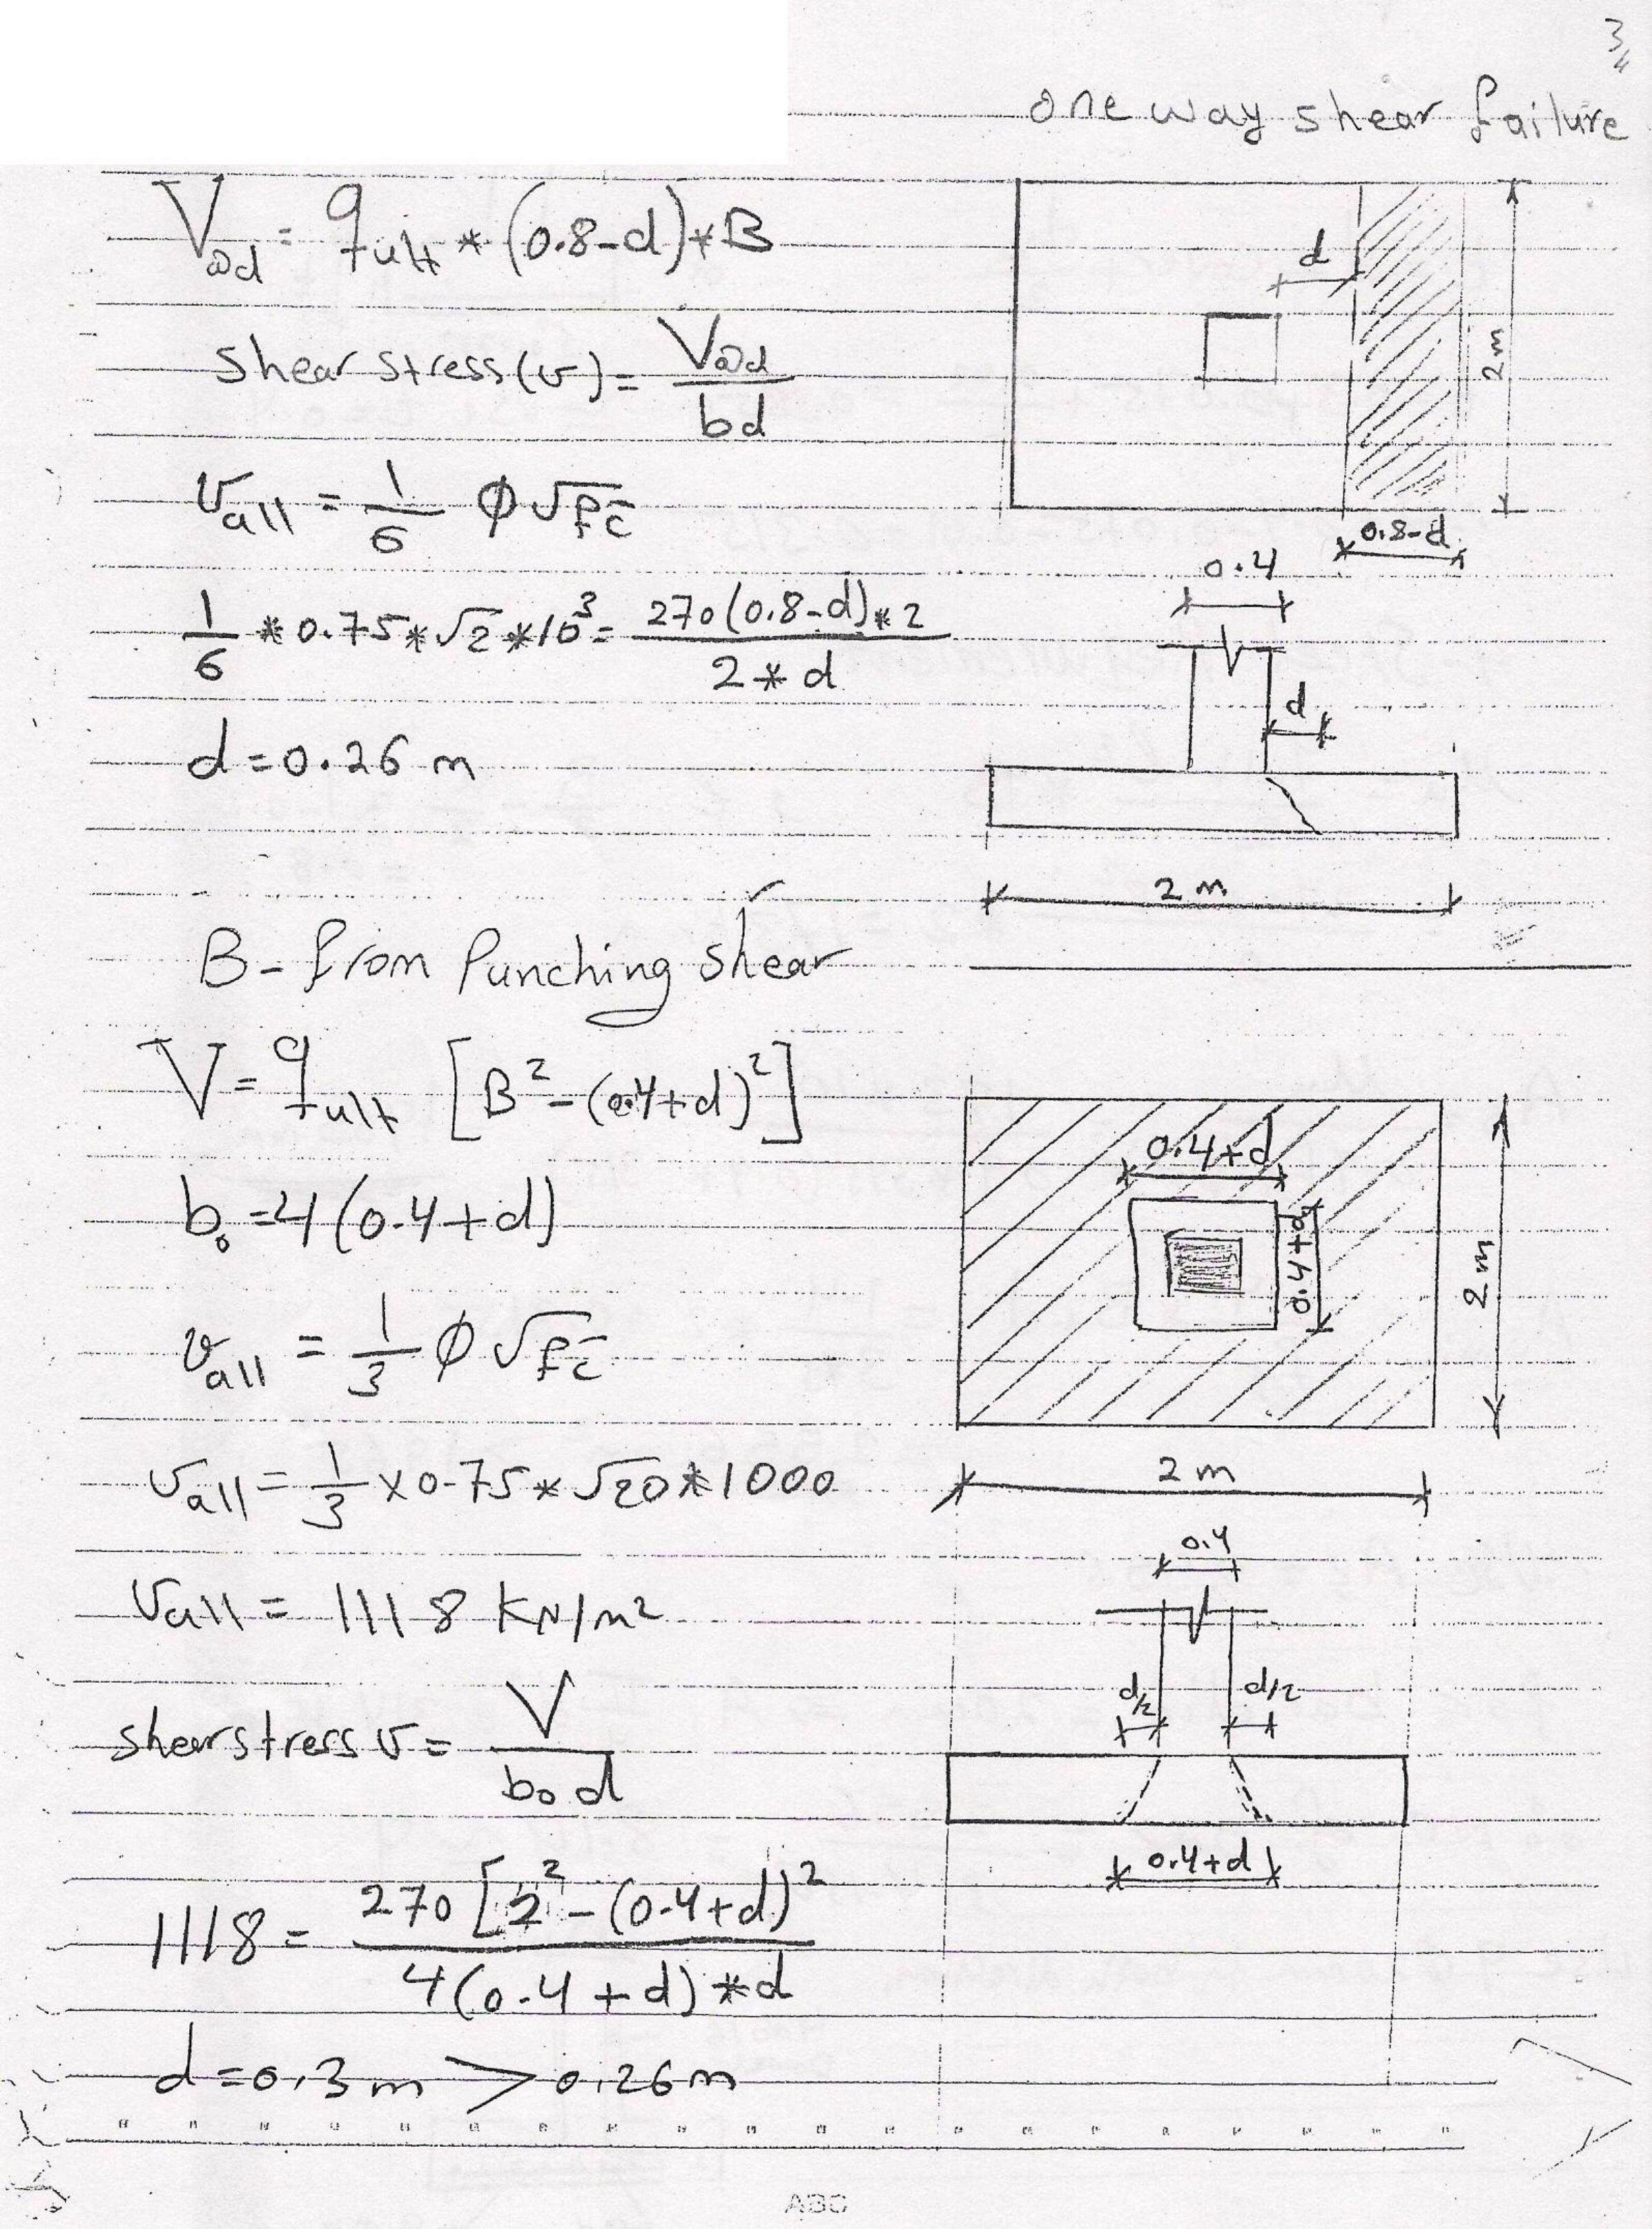 3/4
one way shear failure
V@d = qult * (0.8-d) * B
shear stress (v) = V@d / bd
vall = 1/6 φ √fc̄
1/6 * 0.75 * √2 * 10³ = 270 (0.8-d) * 2 / 2 * d
d = 0.26 m
d
2 m
0.8-d
0.4
d
2 m
B- from Punching shear
V = qult [B² - (0.4+d)²]
b₀ = 4 (0.4+d)
vall = 1/3 φ √fc̄
vall = 1/3 x 0.75 * √20 * 1000
vall = 1118 KN/m²
shear stress v = V / b₀ d
1118 = 270 [2² - (0.4+d)² / 4 (0.4+d) * d
d = 0.3 m > 0.26 m
0.4+d
0.4+d
2 m
2 m
0.4
d/2
d/2
0.4+d
ABC